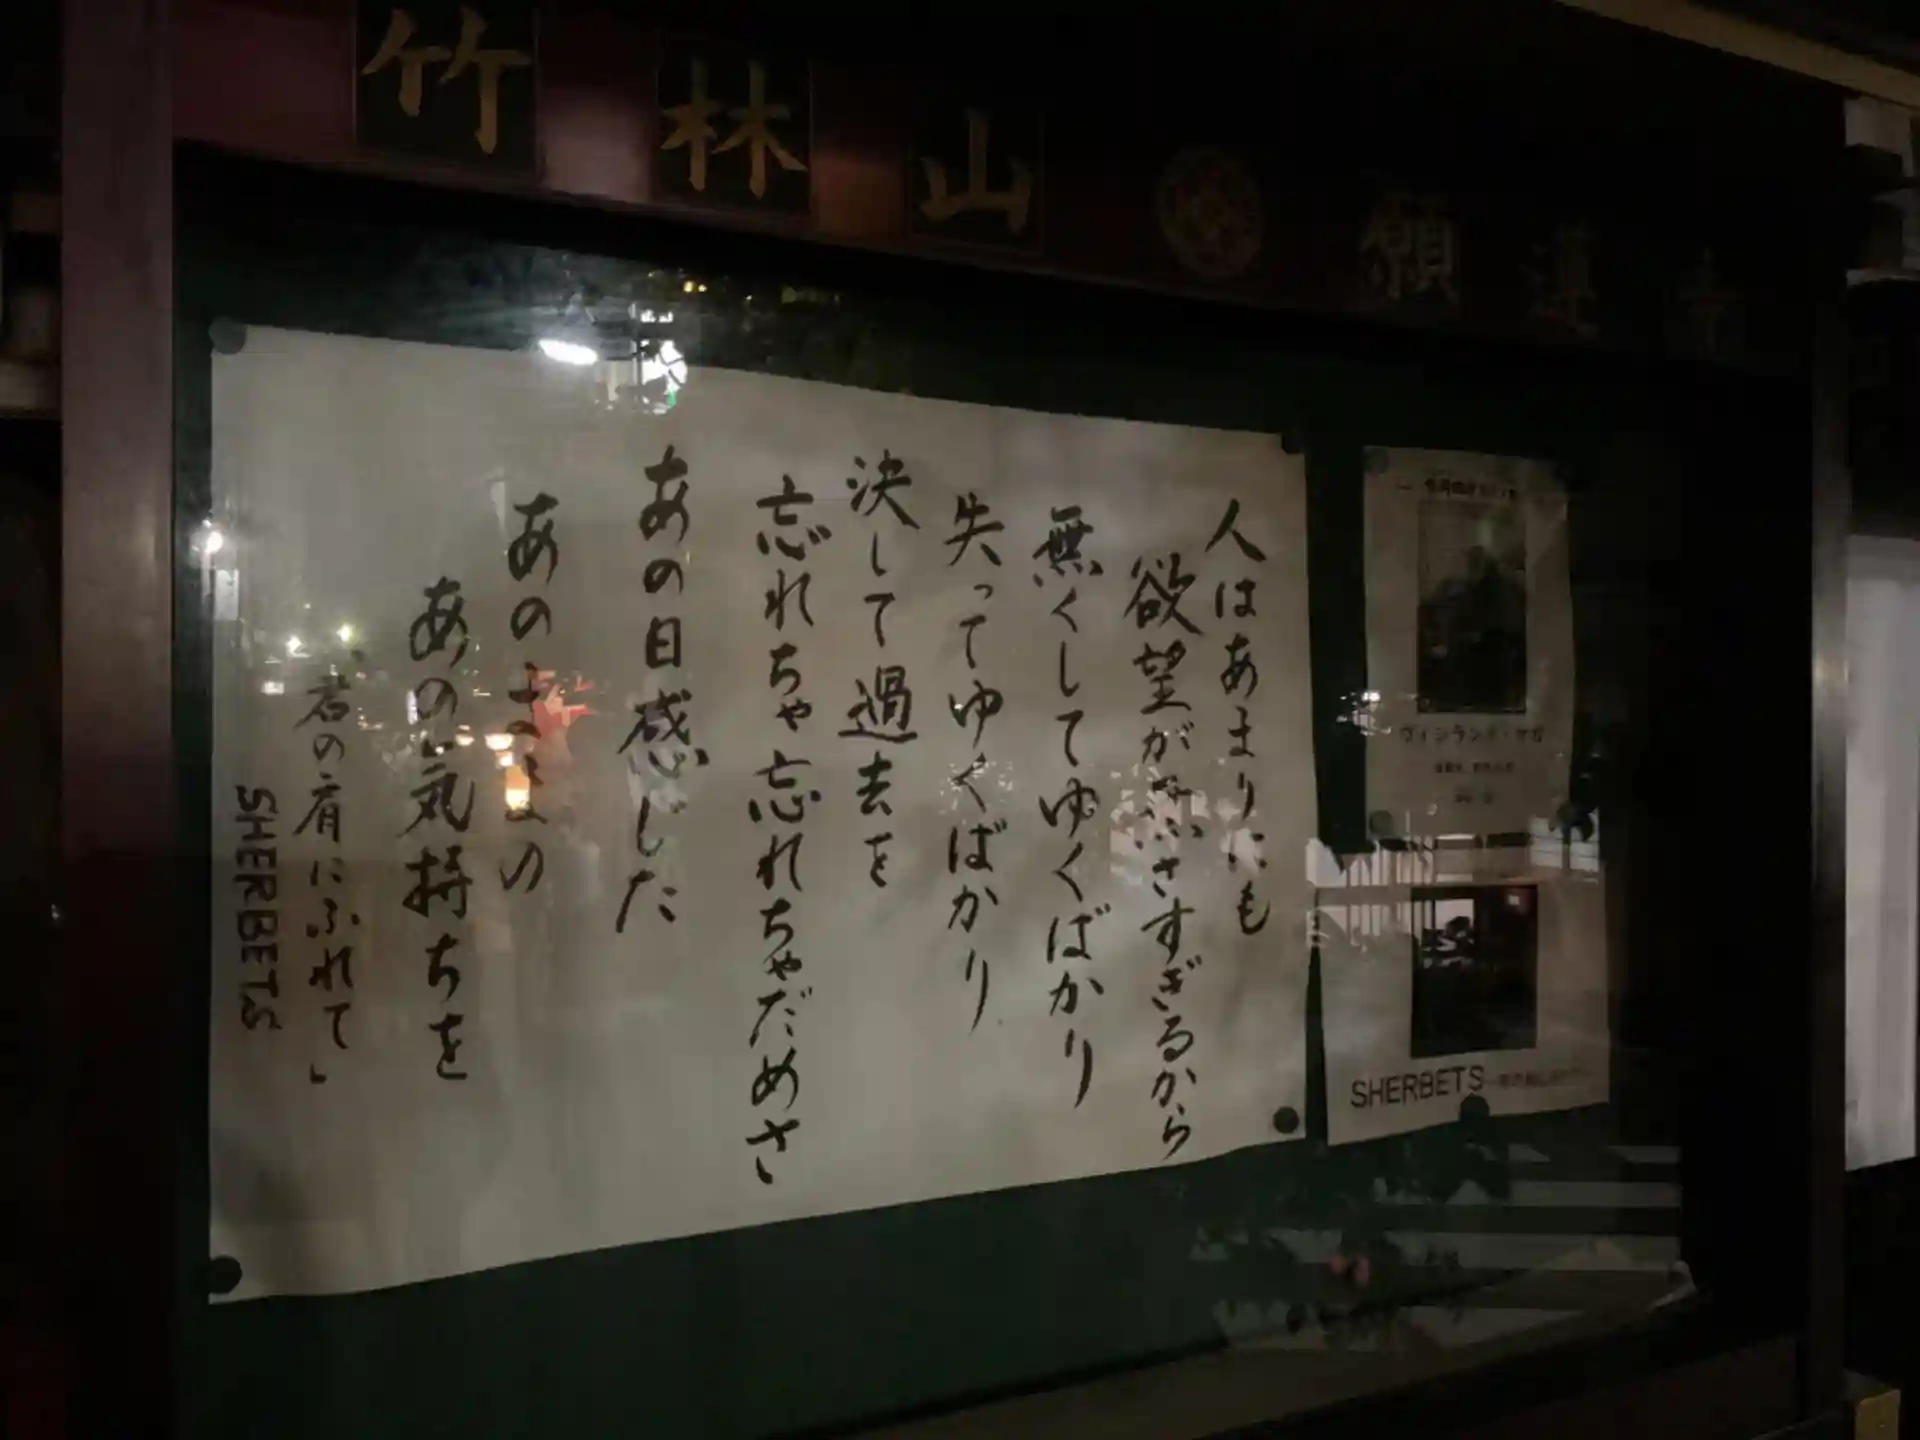 竹林山 願蓮寺
人はあまりにも
欲望が無さすぎるから
無くしてゆくばかり
失ってゆくばかり
決して過去を
忘れちゃ忘れちゃだめさ
あの日感じた
あのままの
あの気持ちを
君の肩にふれて」
SHERBETS
ヴィンランド・サガ
SHERBETS